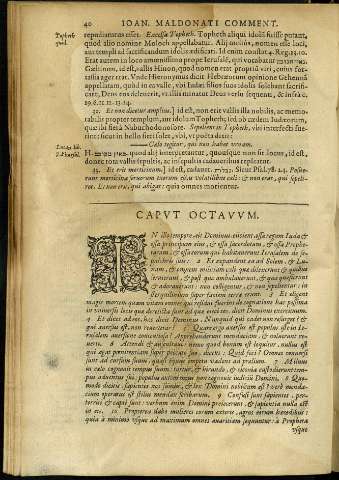 40 IOAN. MALDONATI COMMENT.
repudiaturus esset. Excelsa Topheth. Topheth aliqui idoli fuisse putant,
quod alio nomine Moloch appellabatur. Alij melius, nomen esse loci,
aut templi ad sacrificandum idolo ædificati. Id enim constat 4. Reg. 23.10.
Erat autem in loco amœnissimo prope Ierusalé, qui vocabatur
id est, vallis Hinon, quod nomen erat proprii viri, cuius
ager erat. Vnde Hieronymus dicit Hebræorum opinione Gehennâ
appellatam, quòd in ea valle, vbi Iudæi filios suos idolis solebant sacrifi-
care, Deus eos deleverit, vallis minatur Deus versu sequent. & infrà c.
19. 6. 11. 12. 13. 14.
32. Et non dicetur amplius.] id est, non erit vallis illa nobilis, ac memo-
rabilis propter templum, aut idolum Topheth; sed ob cædem Iudæorum,
quæ ibi fiet à Nabuchodonosore. Sepelient in Topheth, vbi interfecti fue-
rint: sicut in bellis fieri solet, vbi, vt poëta dicit
Cælo tegitur, qui non habet vrnam.
interpretantur, quousque non sit locus, id est,
donec tota vallis sepulis, ac insepultis cadaveribus repleatur.
33. Et erit morticinum.] id est, cadaver. Sicut Psal. 78. 24. Posue-
runt morticina servorum tuorum escas volatilibus cœli: & non erat, qui sepeli-
ret. Et non erit, qui abigat: quia omnes morientur.
CAPVT OCTAVVM.
IN illo tempore, ait Dominus: eiicient ossa regum Iuda &
ossa principum eius, & ossa sacerdotum, & ossa Prophe-
tarum, & ossa eorum qui habitaverunt Ierusalem de se-
pulchris suis: 2 Et expandent ea ad Solem, & Lu-
nam, & omnem militiam cœli quæ dilexerunt & quibus
servierunt, & post quæ ambulaverunt, & quæ quæsierunt
& adoraverunt: non colligentur, & non sepelientur: in
sterquilinium super faciem terræ erunt. 3 Et eligent
magis mortem quam vitam omnes qui residui fuerint de cognatione hac pessima
in vniversis locis quæ derelicta sunt ad quæ eieci eos, dicit Dominus exercituum.
4 Et dices ad eos, hæc dicit Dominus: Nunquid qui cadet non resurget? &
qui aversus est, non revertetur? 5 Quare ergo aversus est populus iste in Ie-
rusalem aversione contentiosa? Apprehenderunt mendacium, & noluerunt re-
verti. 6 Attendi, & auscultavi: nemo quod bonum est loquitur, nullus est
qui agat pœnitentiam super peccato suo, dicens: Quid feci? Omnes conversi
sunt ad cursum suum, quasi equus impetu vadens ad prælium. 7 Milvus
in cælo cognovit tempus suum: turtur, & hirundo, & ciconia custodierunt tem-
pus adventus sui, populus autem meus non cognovit iudicium Domini. 8 Quo-
modo dicitis, sapientes nos sumus, & lex Domini nobiscum est? verè menda-
cium operatus est stilus mendax scribarum. 9 Confusi sunt sapientes, per-
territi & capti sunt: verbum enim Domini proiecerunt, & sapientia nulla est
in eis. 10 Propterea dabo mulieres eorum exteris, agros eorum heredibus:
quia à minimo vsque ad maximum omnes avaritiam sequuntur: à Propheta
vsque